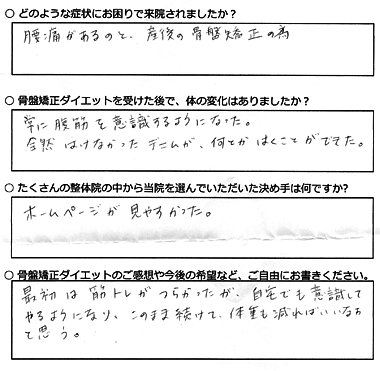 ○ どのような症状にお困りで来院されましたか？
腰痛があるのと、産後の骨盤矯正の為
○ 骨盤矯正ダイエットを受けた後で、体の変化はありましたか？
常に腹筋を意識するようになった。
全然はけなかったデニムが、何とかはくことができた。
○ たくさんの整体院の中から当院を選んでいただいた決め手は何ですか?
ホームページが見やすかった。
○ 骨盤矯正ダイエットのご感想や今後の希望など、ご自由にお書きください。
最初は筋トレがつらかったが、自宅でも意識して
やるようになり、このまま続けて、体重も減ればいいなぁ
て思う。